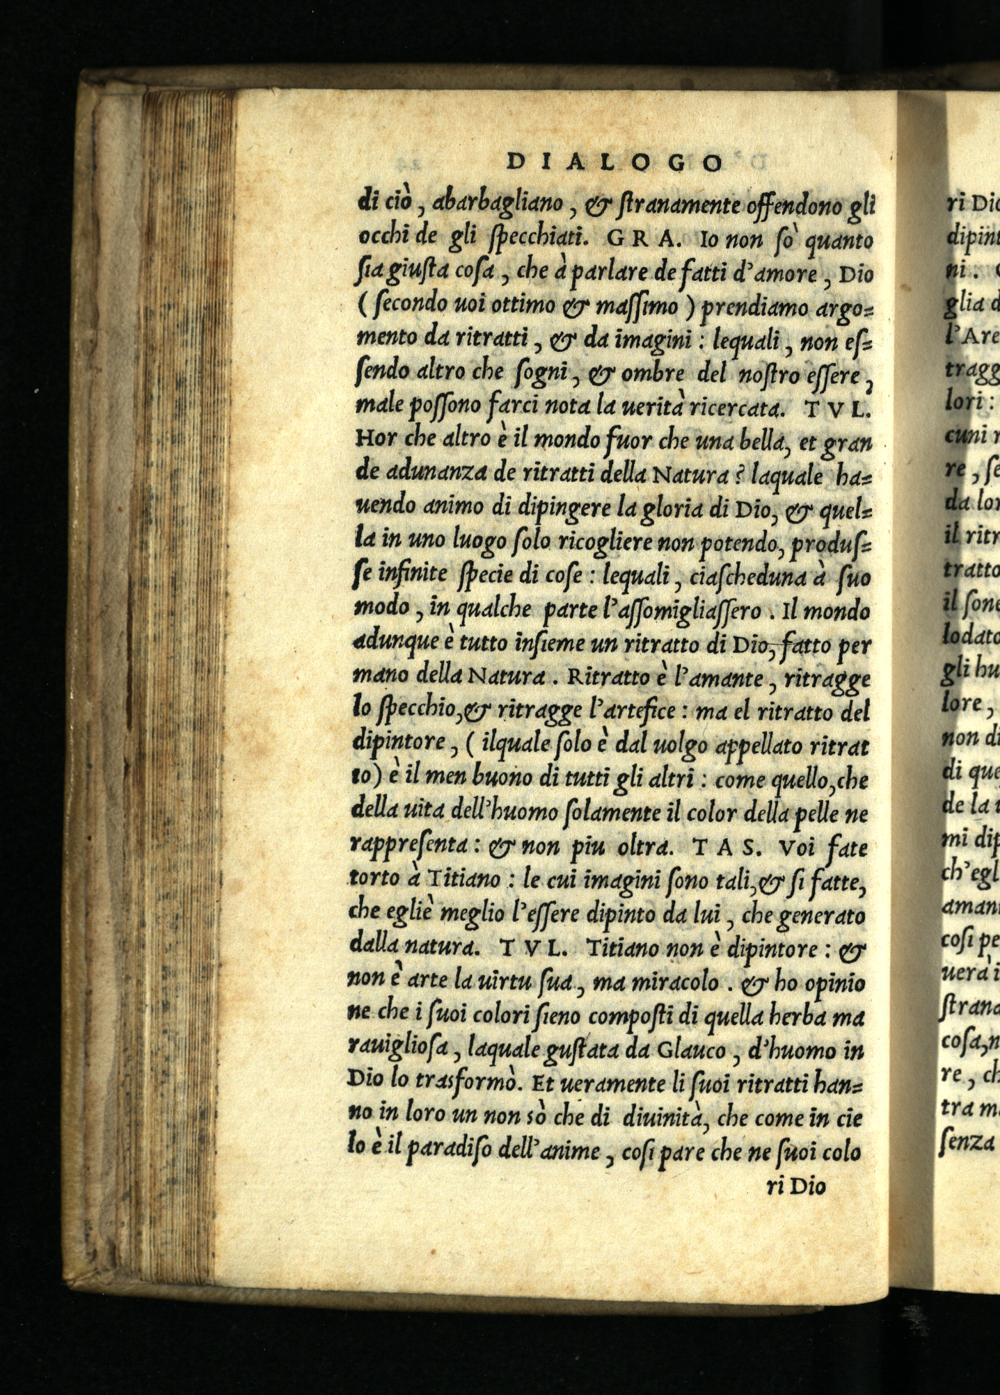 DIALOGO
di ciò, abarbagliano, & ſtranamente offendono gli
occhi de gli ſpecchiati. GRA. Io non ſò quanto
ſia giuſta coſa, che à parlare de fatti d'amore, Dio
(ſecondo uoi ottimo & maſſimo) prendiamo argo=
mento da ritratti, & da imagini: lequali, non eſ=
ſendo altro che ſogni, & ombre del noſtro eſſere,
male poſſono farci nota la uerità ricercata. TVL.
Hor che altro è il mondo fuor che una bella, et gran
de adunanza de ritratti della Natura? laquale ha=
uendo animo di dipingere la gloria di Dio, & quel=
la in uno luogo ſolo ricogliere non potendo, produſ=
ſe infinite ſpecie di coſe: lequali, ciaſcheduna à ſuo
modo, in qualche parte l'aſſomigliaſſero. Il mondo
adunque è tutto inſieme un ritratto di Dio, fatto per
mano della Natura. Ritratto è l'amante, ritragge
lo ſpecchio, & ritragge l'artefice: ma el ritratto del
dipintore, (ilquale ſolo è dal uolgo appellato ritrat
to) è il men buono di tutti gli altri: come quello, che
della uita dell'huomo ſolamente il color della pelle ne
rappreſenta: & non piu oltra. TAS. Voi fate
torto à Titiano: le cui imagini ſono tali, & ſi fatte,
che egliè meglio l'eſſere dipinto da lui, che generato
dalla natura. TVL. Titiano non è dipintore: &
non è arte la uirtu ſua, ma miracolo. & ho opinio
ne che i ſuoi colori ſieno compoſti di quella herba ma
rauiglioſa, laquale guſtata da Glauco, d'huomo in
Dio lo trasformò. Et ueramente li ſuoi ritratti han=
no in loro un non sò che di diuinità, che come in cie
lo è il paradiſo dell'anime, coſi pare che ne ſuoi colo
ri Dio
ri Dio
dipint
ni.
glia d
l'Are
tragg
lori:
cuni r
re, ſe
da lor
il ritr
tratto
il ſone
lodato
gli hu
lore,
non di
di que
de la
mi dip
ch'egl
amant
coſi pe
uerà i
ſtrana
coſa, n
re, ch
tra m
ſenza